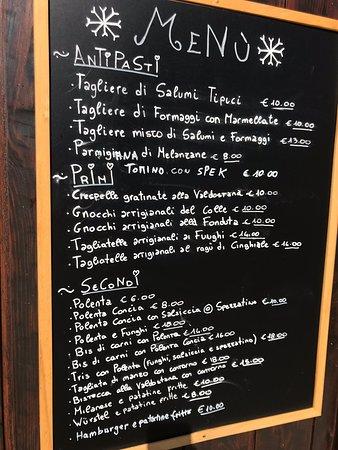 MENÙ
~ ANTIPASTI
· Tagliere di Salumi Tipici € 10.00
· Tagliere di Formaggi con Marmellate € 10.00
· Tagliere misto di Salumi e Formaggi € 13.00
· Parmigiana di Melanzane € 8.00
TOMINO CON SPEK € 10.00
~ PRIMI
· Crespelle gratinate alla Valdostana € 10.00
· Gnocchi artigianali del Colle € 10.00
· Gnocchi artigianali alla Fonduta € 10.00
· Tagliatelle artigianali ai Funghi € 14.00
· Tagliatelle artigianali al ragù di Cinghiale € 14.00
~ SECONDI
· Polenta € 6.00
· Polenta Concia € 8.00
· Polenta Concia con Salsiccia o Spezzatino € 10.00
· Polenta e Funghi € 10.00
· Bis di carni con Polenta € 14.00
· Bis di carni con Polenta Concia € 16.00
· Tris con Polenta (funghi, salsiccia e spezzatino) € 18.00
· Tagliata di manzo con contorno € 18.00
· Bistecca alla Valdostana con contorno € 18.00
· Milanese e patatine fritte € 10.00
· Würstel e patatine fritte € 8.00
· Hamburger e patatine fritte € 10.00